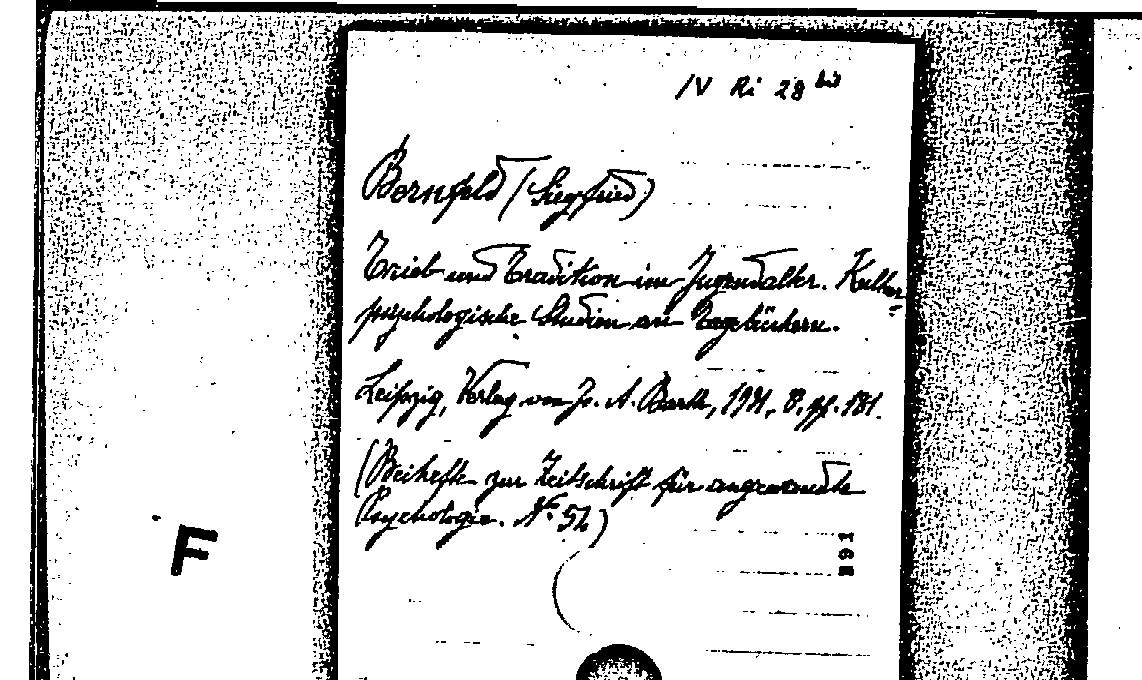 IV Ri 28 bis
Bernfeld (Siegfried)
Trieb und Tradition im Jugendalter. Kultur=
psychologische Studien an Tagebüchern.
Leipzig, Verlag von J. A. Barth, 1931, 8, pp. 181.
(Beihefte zur Zeitschrift für angewandte
Psychologie. Nº 54)
F